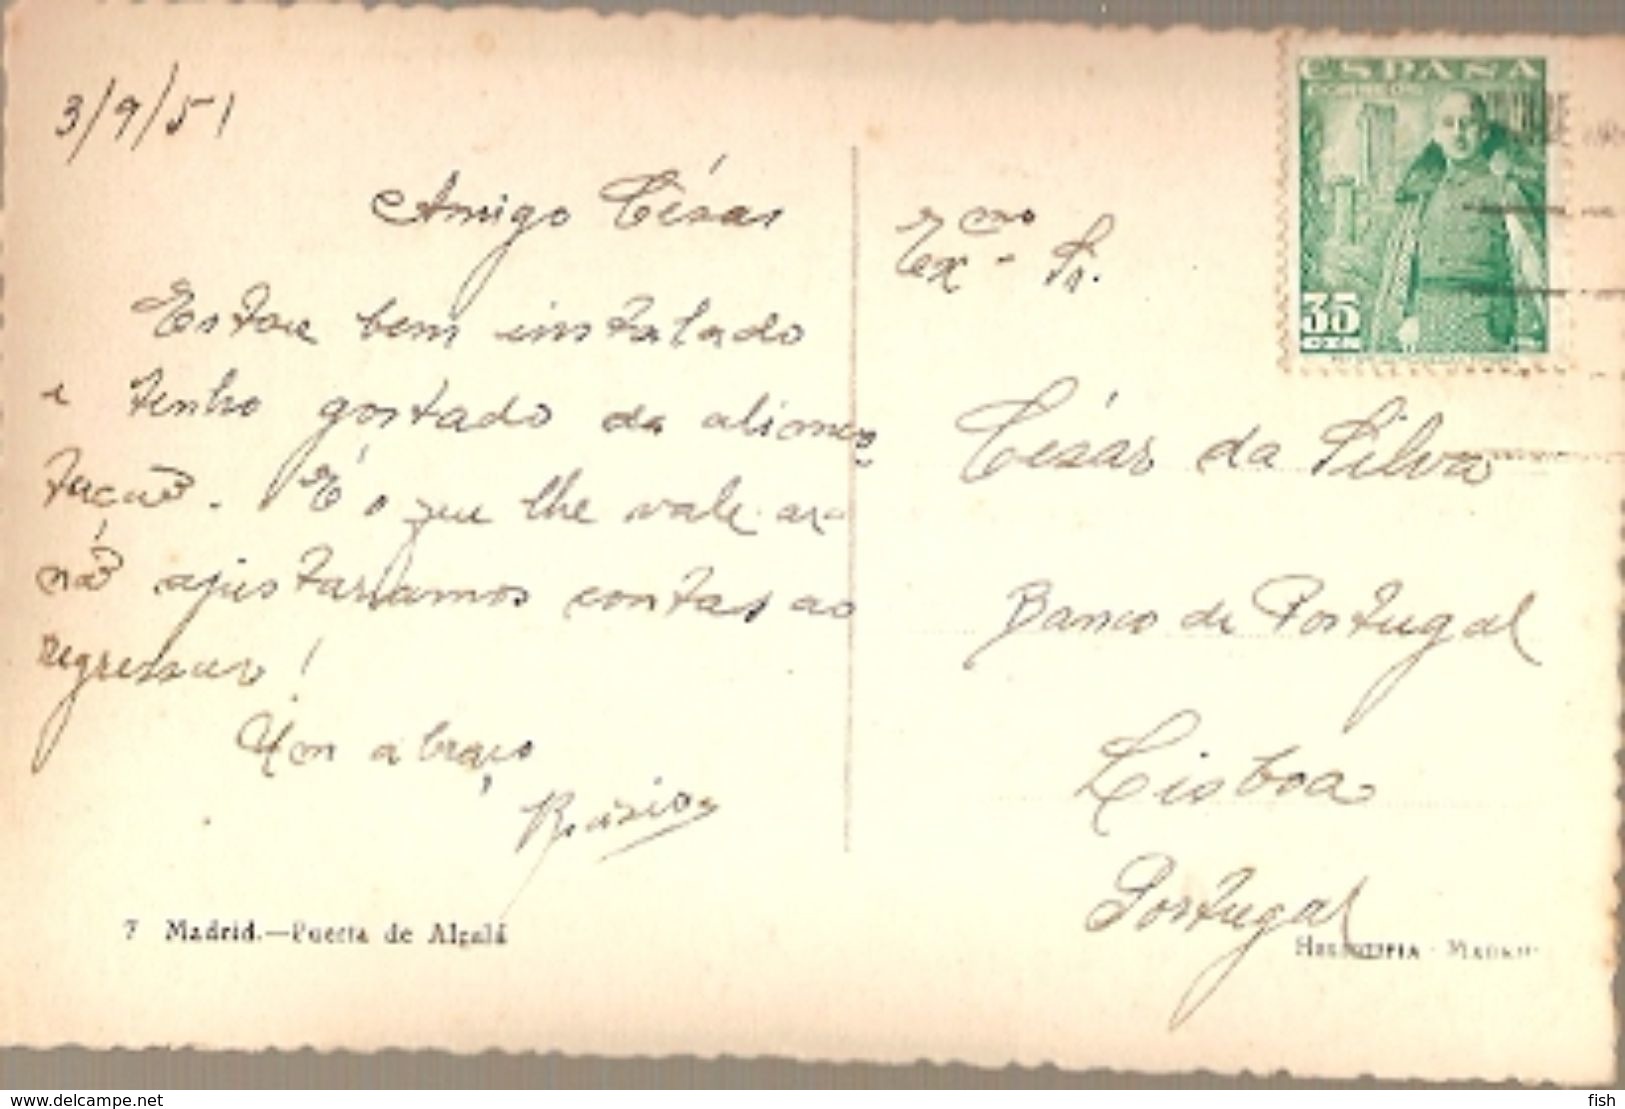 3/9/51
Amigo César
Estou bem instalado
e tenho gostado da alimen-
tação. É o que lhe vale se-
não ajustaríamos contas ao
regressar!
Um abraço
7 Madrid.—Puerta de Alcalá
ESPAÑA
CORREOS
35
CTS
Exmo Sr.
César da Silva
Banco de Portugal
Lisboa
Portugal
HELIOTIPIA - MADRID
www.delcampe.net
fish